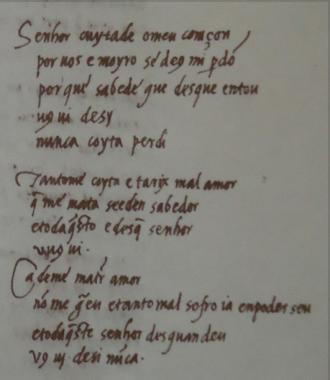 Senhor cuytade o meu coraçon
por uos e moyro se d's mi p'dō
por que sabede que des que entou
u9 ui desy
nunca coyta perdi
Tantome coyta e tarix mal amor
q̄ me mata seeden sabedor
e tod aq̄sto e desq̄ senhor
u9 ui.
Ca deme matr̃ amor
nō me q̃ eu e tanto mal sofro ia en poder seu
e tod aq̄ste senhor des quandeu
u9 ui desi nūca.